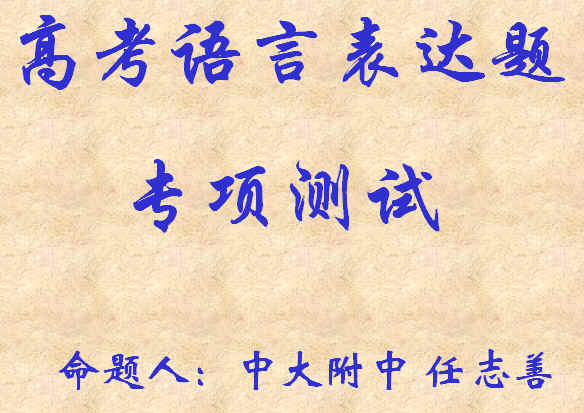 高考语言表达题
专项测试
命题人：中大附中 任志善